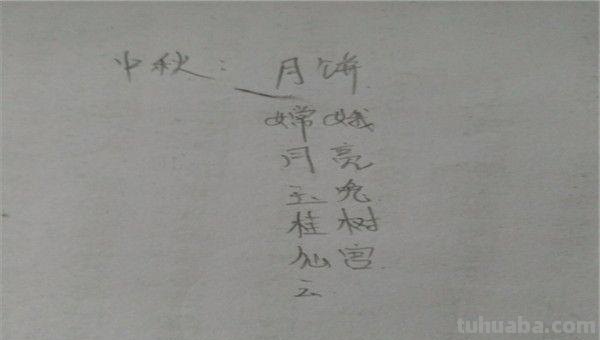 中秋： 月饼
嫦娥
月亮
玉兔
桂树
仙宫
云
tuhuaba.com